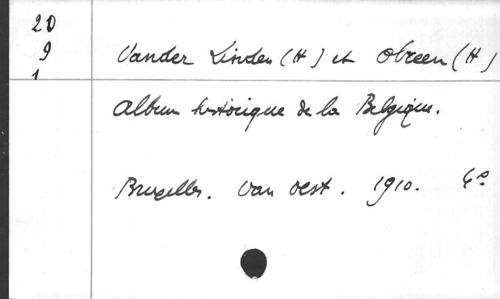 20
9
1
Vander Linden (H) et Obreen (H)
Album historique de la Belgique.
Bruxelles. Van Oest. 1910. 4°